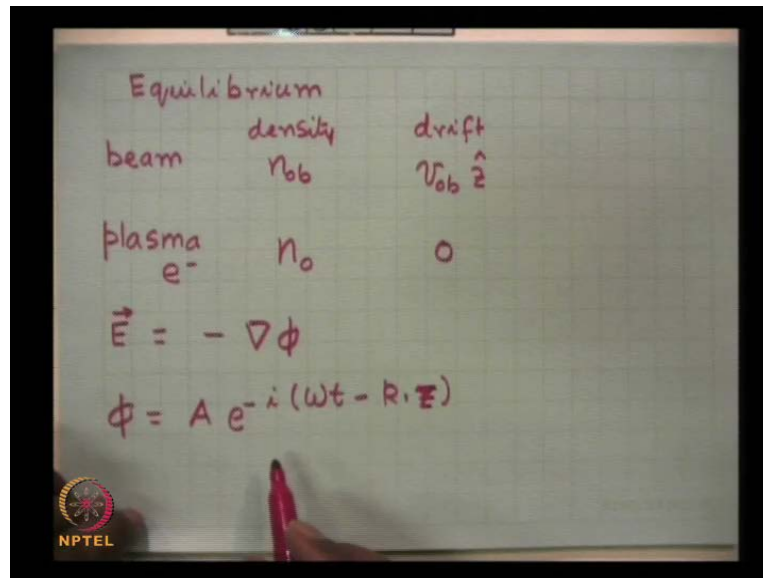 Equilibrium
density drift
beam n₀b v₀b ẑ
plasma e⁻ n₀ 0
E⃗ = - ∇ϕ
ϕ = A e^{-i(ωt - k.z)}
NPTEL